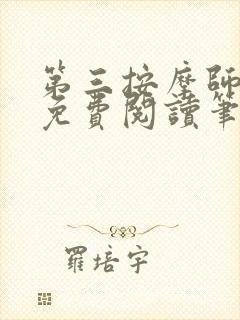 第三按摩師
免費閱讀筆
羅培宇